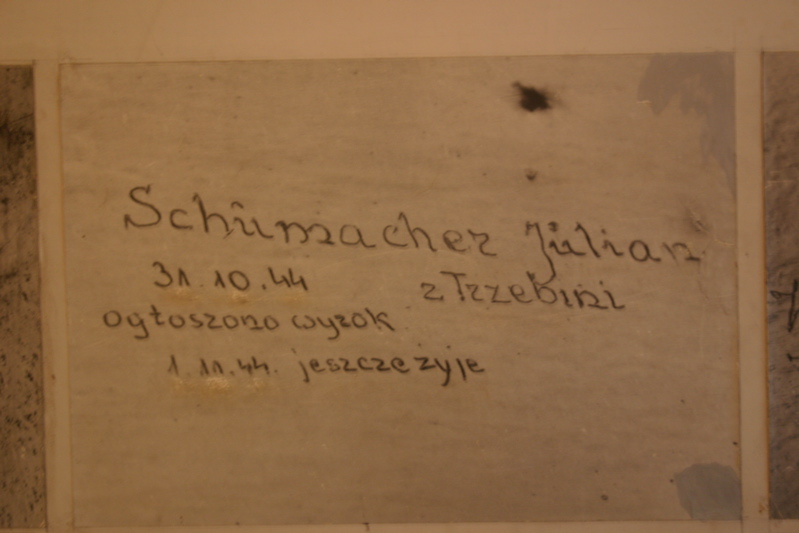 Schumacher Julian
31.10.44 z Trzebini
ogłoszono wyrok
1.11.44. jeszcze żyje